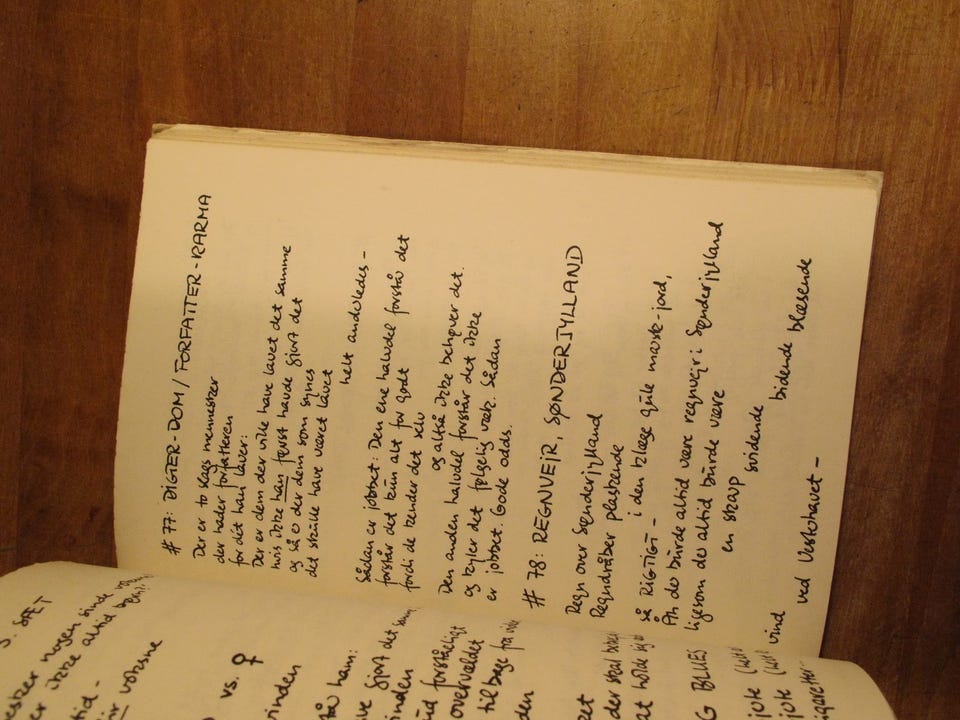 # 77: DIGTER-DOM / FORFATTER-KARMA
Der er to slags mennesker
der hader forfatteren
for dét han laver:
Der er dem der ville have lavet det samme
hvis ikke han først havde gjort det
og så er der dem som synes
det skulle have været lavet
helt anderledes –
Sådan er jobbet: Den ene halvdel forstår det
forstår det kun alt for godt
fordi de kender det selv
og altså ikke behøver det.
Den anden halvdel forstår det ikke
og bryder det følgelig væk. Sådan
er jobbet. Gode odds.
# 78: REGNVEJR, SØNDERJYLLAND
Regn over Sønderjylland
Regndråber plaskende
i den blege gule marsk-jord,
så RIGTIGT –
Åh der burde altid være regnvejr i Sønderjylland
ligesom der altid burde være
en skarp
svidende
bidende blæsende
vind
ved Vesterhavet –
S. SÆT
nogen sinde
ikke altid
tid –
voksne
vs. ♀
kvinden
ham:
gjort det
inden
forståeligt
overvældet
tilbage fra
den
der skal
at holde
BLUES